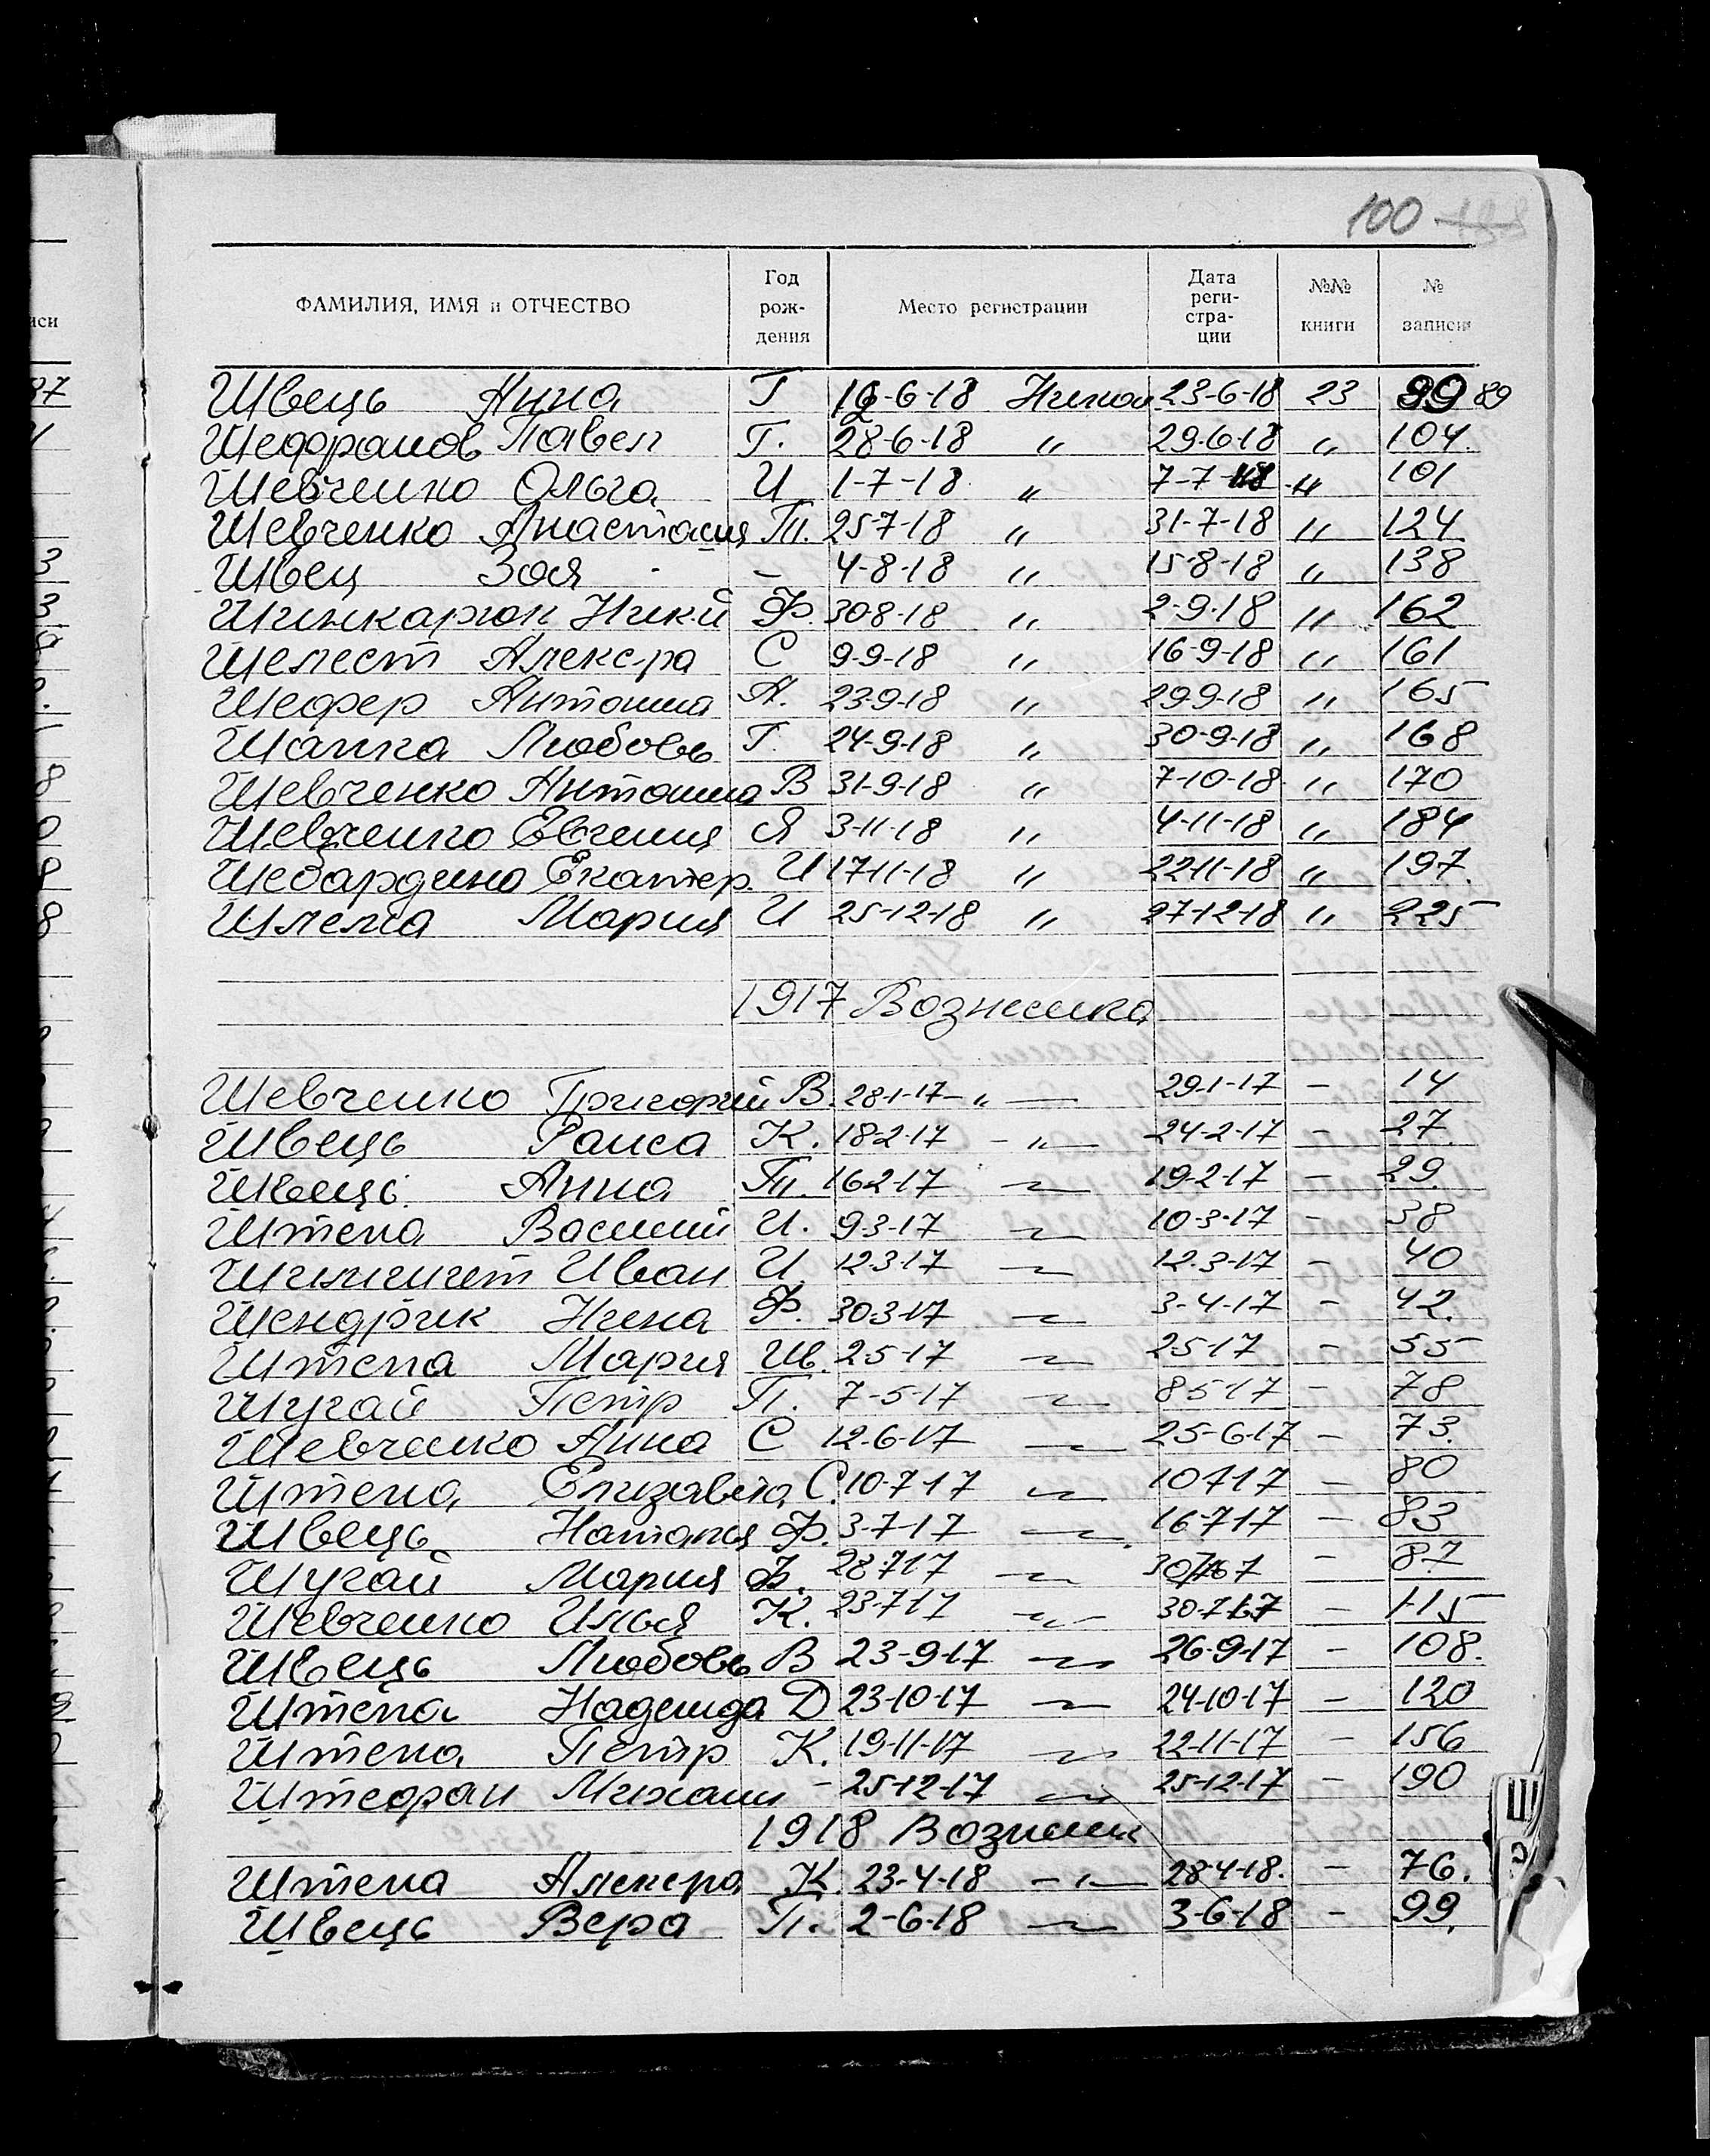 100
ФАМИЛИЯ, ИМЯ и ОТЧЕСТВО Год рож- дения Место регистрации Дата реги- стра- ции №№ книги № записи
Швець Анна Г 12-6-18 Никол 23-6-18 23 89 89
Шефранов Павел Г. 28-6-18 " 29-6-18 " 104.
Шевченко Ольга И 1-7-18 " 7-7-18 " 101
Шевченко Анастасия П. 25-7-18 " 31-7-18 " 124
Швец Зоя - 4-8-18 " 15-8-18 " 138
Шинкарюк Ник-й Ф. 30-8-18 " 2-9-18 " 162
Шелест Алекс-ра С 9-9-18 " 16-9-18 " 161
Шефер Антонина А. 23-9-18 " 29-9-18 " 165
Шапка Любовь Г. 24-9-18 " 30-9-18 " 168
Шевченко Антонина В 31-9-18 " 7-10-18 " 170
Шевченко Евгения Я 3-11-18 " 4-11-18 " 184
Шебардина Екатер. И 17-11-18 " 22-11-18 " 197.
Шлема Мария И 25-12-18 " 27-12-18 " 225
1917
Шевченко Григорий В. 28-1-17 - " - 29-1-17 - 14
Швець Раиса К. 18-2-17 - " - 24-2-17 - 27.
Швець Анна П. 16-2-17 - " - 19-2-17 - 29.
Штепа Василий И. 9-3-17 - " - 10-3-17 - 38
Иван И 12-3-17 - " - 12-3-17 - 40
Шендрик Нина Ф. 30-3-17 - " - 3-4-17 - 42.
Штепа Мария 2-5-17 - " - 2-5-17 - 55
Шугай Петр П. 7-5-17 - " - 8-5-17 - 78
Шевченко Анна С 12-6-17 - " - 25-6-17 - 73.
Штепа Елизавета С. 10-7-17 - " - 10-7-17 - 80
Швець Наталья Ф. 3-7-17 - " - 16-7-17 - 83
Шугай Мария Ф. 28-7-17 - " - - 87
Шевченко Илья К. 23-7-17 - " - 30-7-17 - 115
Швець Любовь В 23-9-17 - " - 26-9-17 - 108.
Штепа Надежда Д 23-10-17 - " - 24-10-17 - 120
Штепа Петр К. 19-11-17 - " - 22-11-17 - 156
Штефан Михаил - 25-12-17 - " - 25-12-17 - 190
1918
Штепа Алекс-ра К. 23-4-18 - " - 28-4-18. - 76.
Швець Вера П. 2-6-18 - " - 3-6-18 - 99.